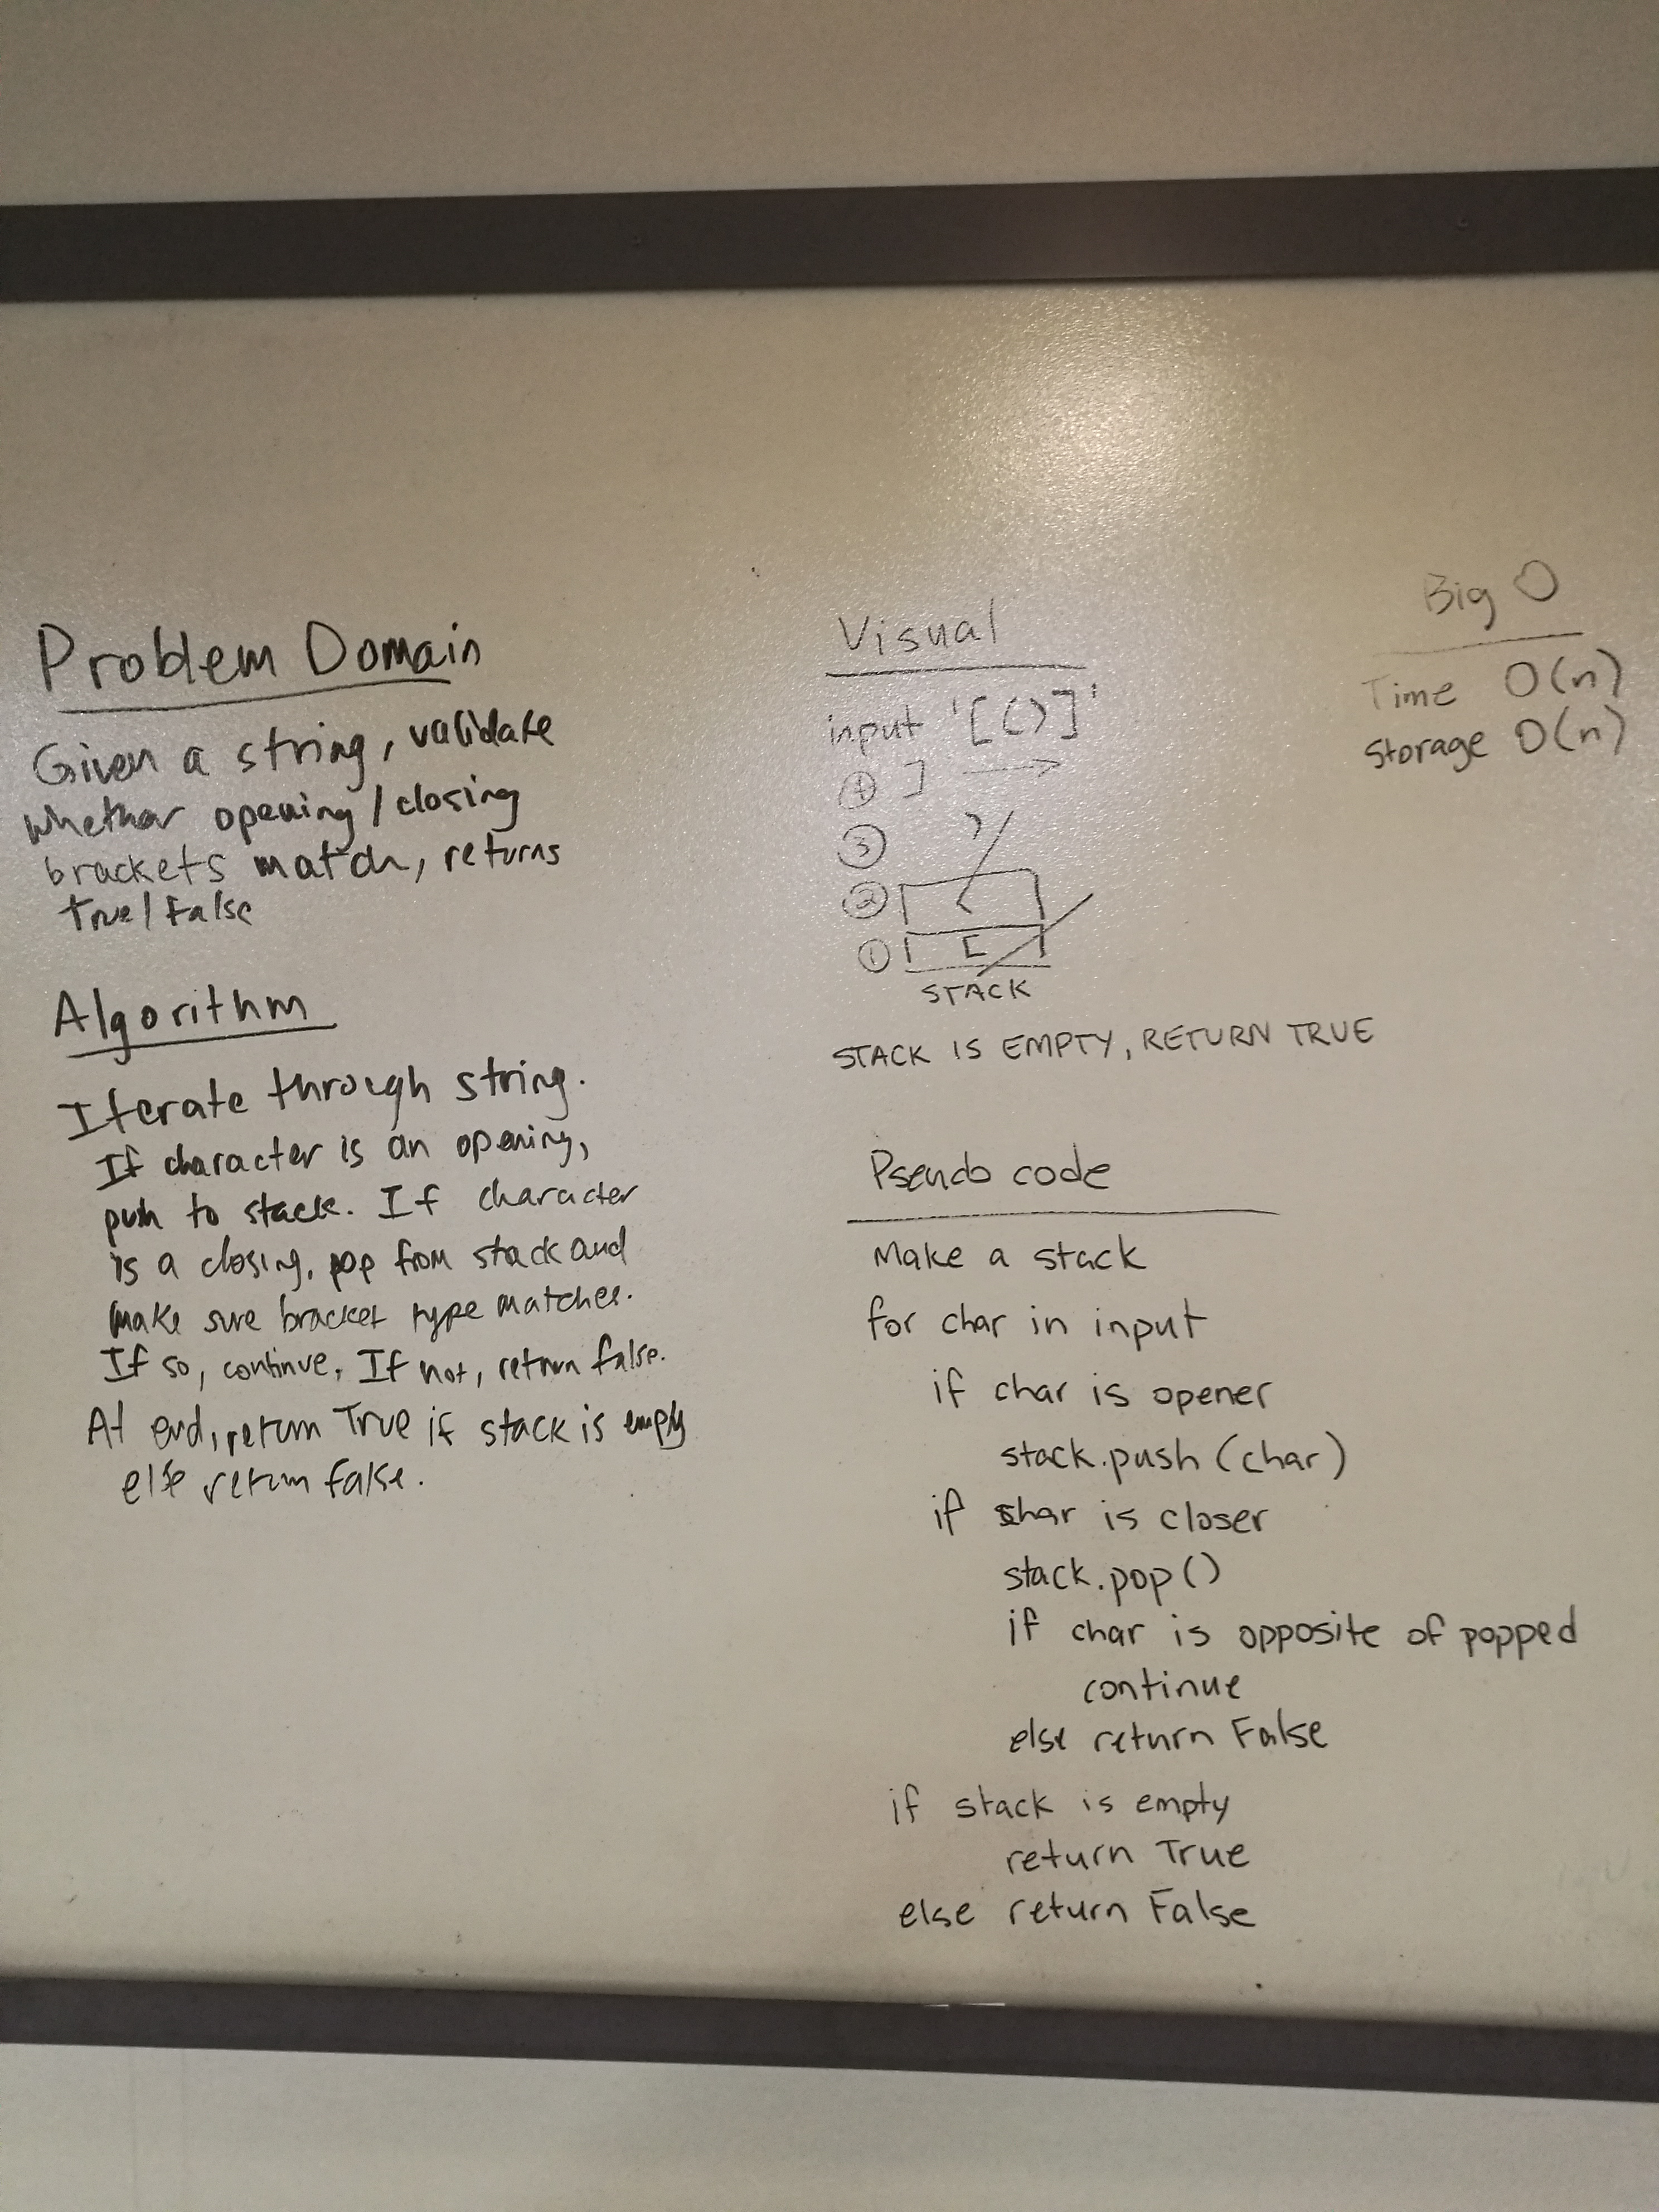 Problem Domain
Given a string, validate
whether opening/closing
brackets match, returns
True/False
Algorithm
Iterate through string.
If character is an opening,
push to stack. If character
is a closing, pop from stack and
make sure bracket type matches.
If so, continue. If not, return false.
At end, return True if stack is empty
else return false.
Visual
input '[()]'
④ ]
③ )
② (
① [
STACK
STACK IS EMPTY, RETURN TRUE
Big O
Time O(n)
Storage O(n)
Pseudo code
Make a stack
for char in input
if char is opener
stack.push(char)
if char is closer
stack.pop()
if char is opposite of popped
continue
else return False
if stack is empty
return True
else return False